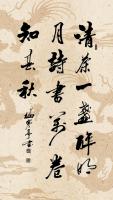 清茶一盏醉明
月诗书万卷
知春秋